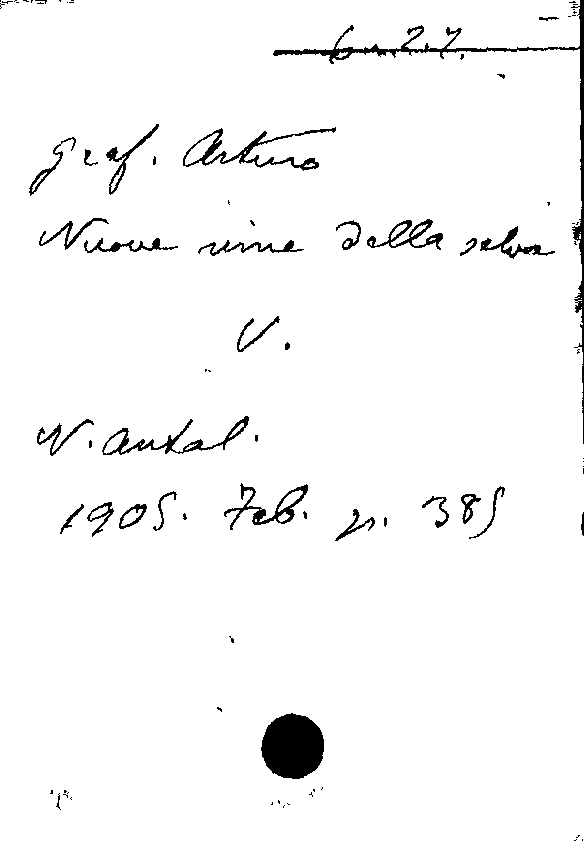 Graf. Arturo
Nuove rime della selva
V.
N. Antol.
1905. Feb. p. 385